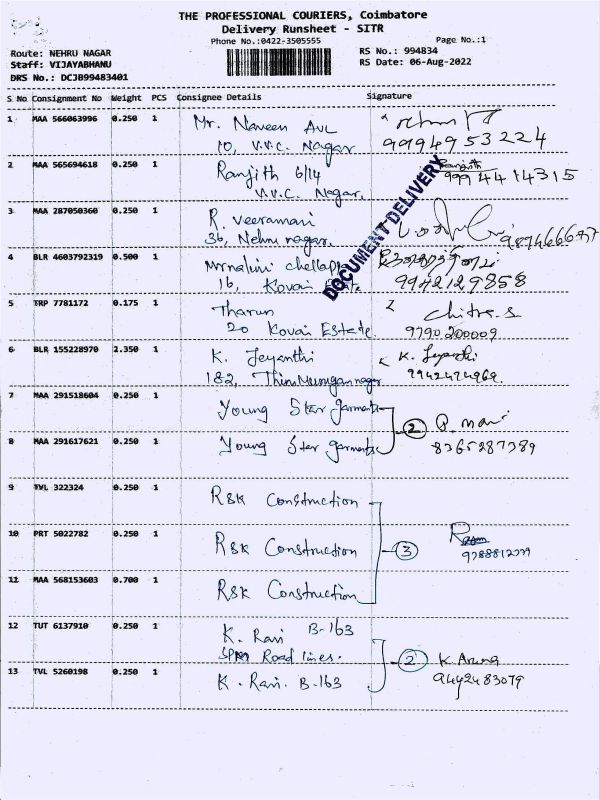 THE PROFESSIONAL COURIERS, Coimbatore
Delivery Runsheet - SITR
Phone No.:0422-3505555
Page No.:1
Route: NEHRU NAGAR
RS No.: 994834
Staff: VIJAYABHANU
RS Date: 06-Aug-2022
DRS No.: DCJB99483401
S No Consignment No Weight PCS Consignee Details Signature
1 MAA 566063996 0.250 1 Mr. Naveen AVL
10, V.V.C. Nagar 9994953224
2 MAA 565694618 0.250 1 Ranjith 6/14 Ranjith
V.V.C. Nagar. 9994414315
3 MAA 287050360 0.250 1 R. Veeramani
36, Nehru nagar.
4 BLR 4603792319 0.500 1 Mrnalini chellappa
16, Kovai Estate 9942129858
DOCUMENT DELIVERY
5 TRP 7781172 0.175 1 Tharun Chitra.S
20 Kovai Estate. 9790200009
6 BLR 155228970 2.350 1 K. Jeyanthi K. Jeyanthi
182, Thirumurugan nagar 9942474969.
7 MAA 291518604 0.250 1 Young Star garments
2 P. mani
8 MAA 291617621 0.250 1 Young Star garments 8365287389
9 TVL 322324 0.250 1 R&K Construction
10 PRT 5022782 0.250 1 R&K Construction 3
11 MAA 568153603 0.700 1 R&K Construction
12 TUT 6137910 0.250 1 K. Ravi B-163
SPM Road lines. 2 K. Aruna
13 TVL 5260198 0.250 1 K. Ravi. B-163 9442483079